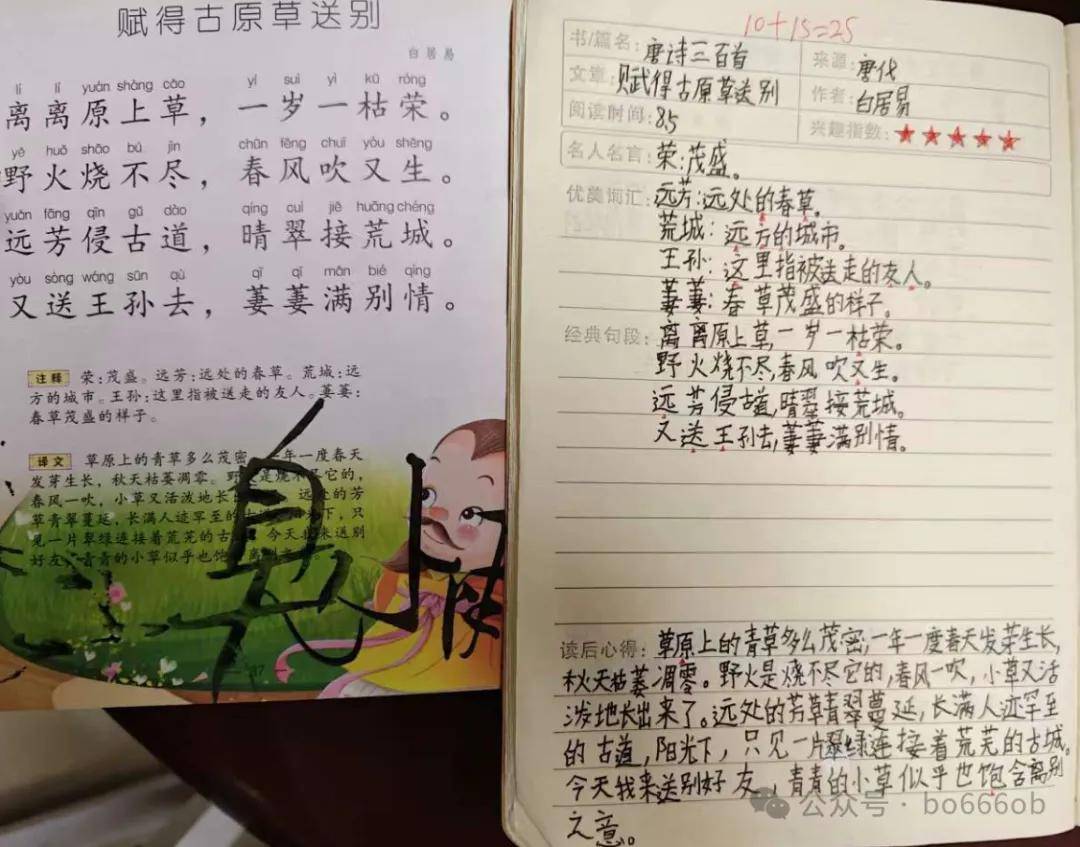 赋得古原草送别
白居易
lí lí yuán shàng cǎo yí suì yì kū róng
离离原上草，一岁一枯荣。
yě huǒ shāo bú jìn chūn fēng chuī yòu shēng
野火烧不尽，春风吹又生。
yuǎn fāng qīn gǔ dào qíng cuì jiē huāng chéng
远芳侵古道，晴翠接荒城。
yòu sòng wáng sūn qù qī qī mǎn bié qíng
又送王孙去，萋萋满别情。
注释 荣：茂盛。远芳：远处的春草。荒城：远
方的城市。王孙：这里指被送走的友人。萋萋：
春草茂盛的样子。
译文 草原上的青草多么茂密，一年一度春天
发芽生长，秋天枯萎凋零。野火是烧不尽它的，
春风一吹，小草又活泼地长出 远处的芳
草青翠蔓延，长满人迹罕至的古 阳光下，只
见一片翠绿连接着荒芜的古 今天我来送别
好友，青青的小草似乎也饱 离别
10+15=25
书/篇名：唐诗三百首 来源：唐代
文章：赋得古原草送别 作者：白居易
阅读时间：85 兴趣指数：★★★★★
名人名言：荣：茂盛。
优美词汇：远芳：远处的春草。
荒城：远方的城市。
王孙：这里指被送走的友人。
萋萋：春草茂盛的样子。
经典句段：离离原上草，一岁一枯荣。
野火烧不尽，春风吹又生。
远芳侵古道，晴翠接荒城。
又送王孙去，萋萋满别情。
读后心得：草原上的青草多么茂密，一年一度春天发芽生长，
秋天枯萎凋零。野火是烧不尽它的，春风一吹，小草又活
泼地长出来了。远处的芳草青翠蔓延，长满人迹罕至
的古道，阳光下，只见一片翠绿连接着荒芜的古城。
今天我来送别好友，青青的小草似乎也饱含离别
之意。
公众号·bo666ob